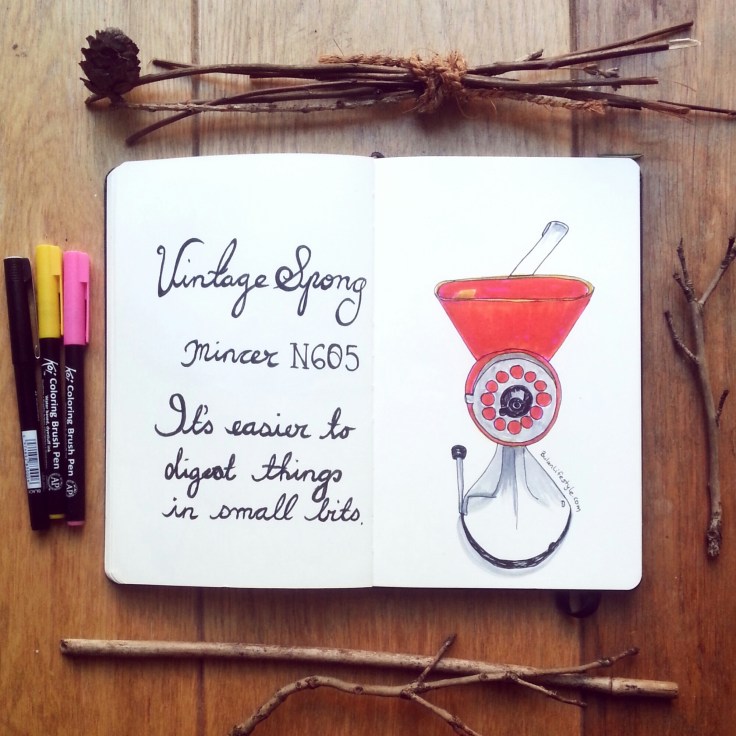 Vintage Spong
Mincer N605
It's easier to
digest things
in small bits.
Koi Coloring Brush Pen
Koi Coloring Brush Pen